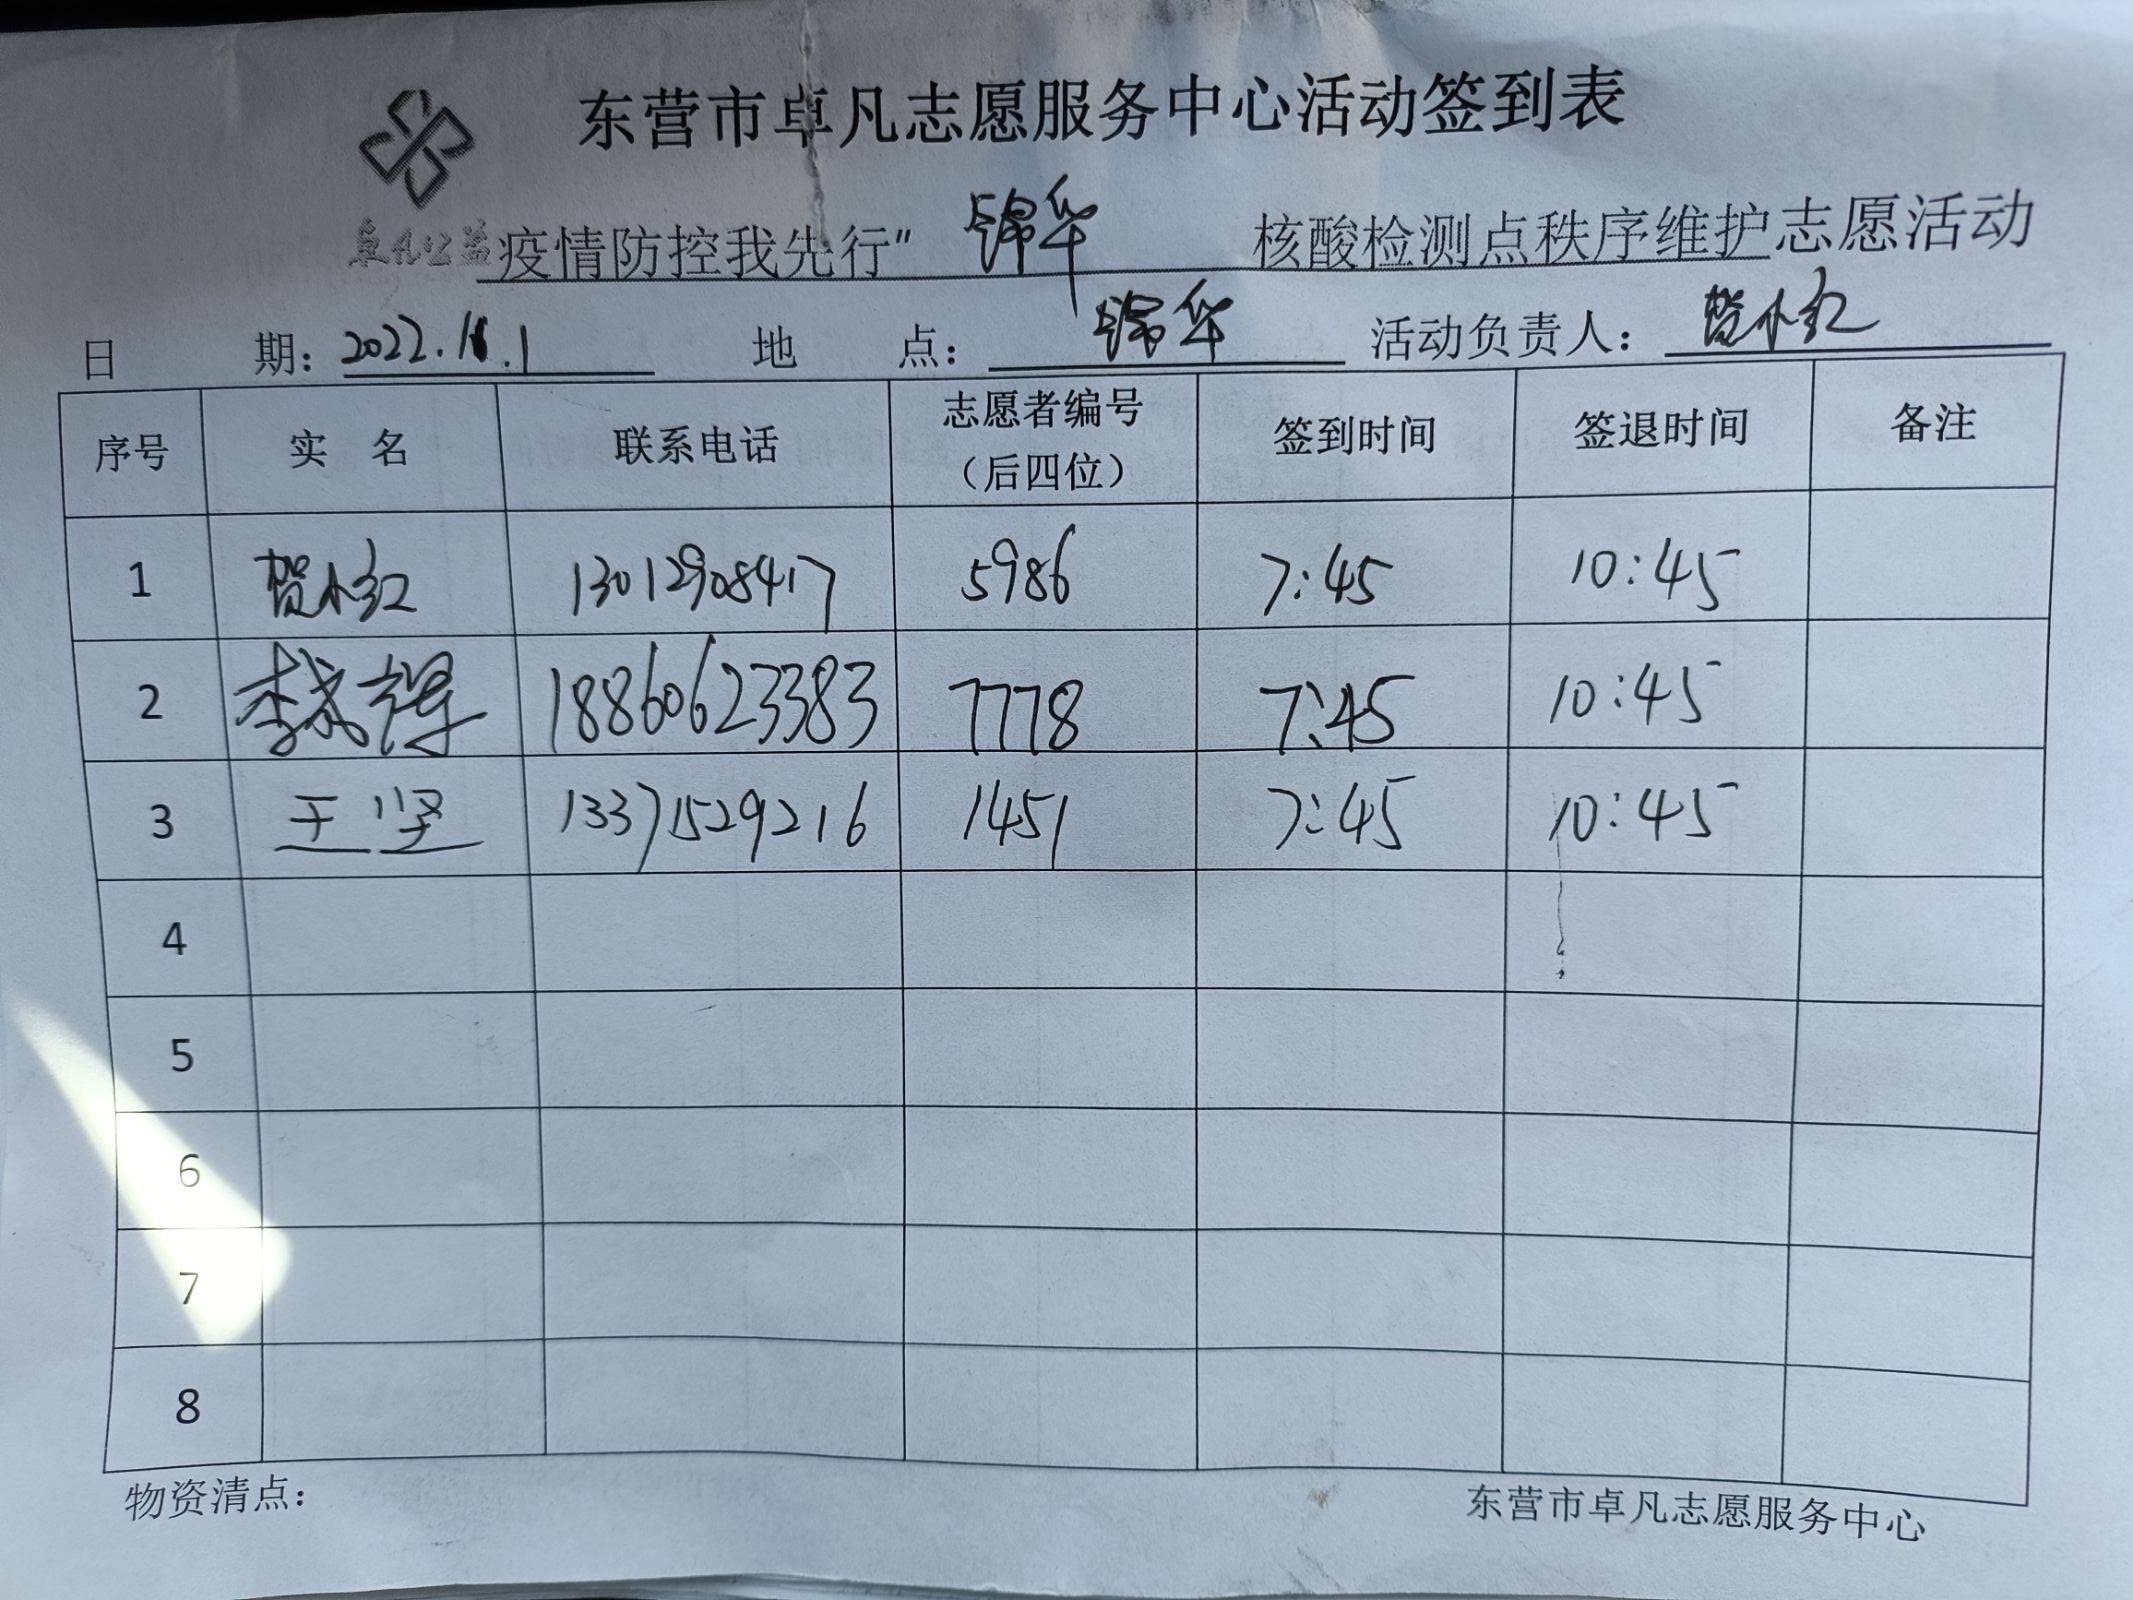 东营市卓凡志愿服务中心活动签到表
卓凡公益
疫情防控我先行” 锦华 核酸检测点秩序维护志愿活动
日 期: 2022.11.1 地 点: 锦华 活动负责人: 贺小红
序号 实 名 联系电话 志愿者编号（后四位） 签到时间 签退时间 备注
1 贺小红 13012908417 5986 7:45 10:45
2 李 18860623383 7778 7:45 10:45
3 王坚 13371529216 1451 7:45 10:45
4
5
6
7
8
物资清点: 东营市卓凡志愿服务中心